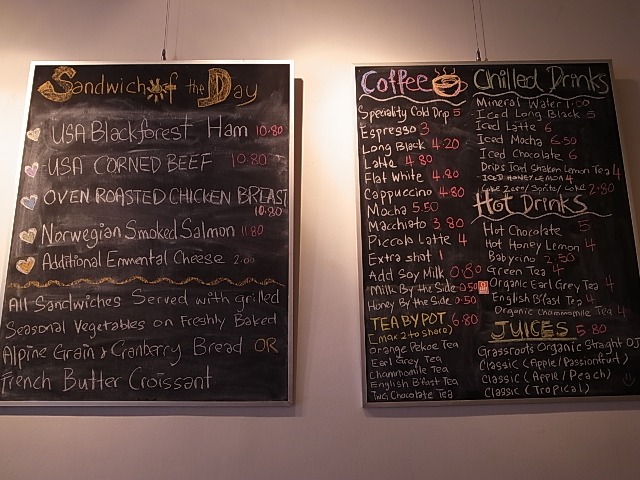 Sandwich of the Day
USA Blackforest Ham 10.80
USA CORNED BEEF 10.80
OVEN ROASTED CHICKEN BREAST
10.80
Norwegian Smoked Salmon 11.80
Additional Emmental Cheese 2.00
All Sandwiches Served with grilled
Seasonal Vegetables on Freshly Baked
Alpine Grain & Cranberry Bread OR
French Butter Croissant
Coffee
Speciality Cold Drip 5
Espresso 3
Long Black 4.20
Latte 4.80
Flat White 4.80
Cappuccino 4.80
Mocha 5.50
Macchiato 3.80
Piccolo Latte 4
Extra shot 1
Add Soy Milk 0.80
Milk By the Side 0.50
Honey By the Side 0.50
TEA BY POT 6.80
[max 2 to share]
Orange Pekoe Tea
Earl Grey Tea
Chammomile Tea
English B'fast Tea
TWG Chocolate Tea
Chilled Drinks
Mineral Water 1.00
Iced Long Black 5
Iced Latte 6
Iced Mocha 6.50
Iced Chocolate 6
Drips Iced Shaken Lemon Tea 4
ICED HONEY LEMON 4
Coke Zero/Sprite/Coke 2.80
Hot Drinks
Hot Chocolate 5
Hot Honey Lemon 4
Babycino 2.50
Green Tea 4
Organic Earl Grey Tea 4
English B'fast Tea 4
Organic Chammomile Tea 4
JUICES 5.80
Grassroots Organic Straight OJ
Classic (Apple/Passionfruit)
Classic (Apple/Peach)
Classic (Tropical)